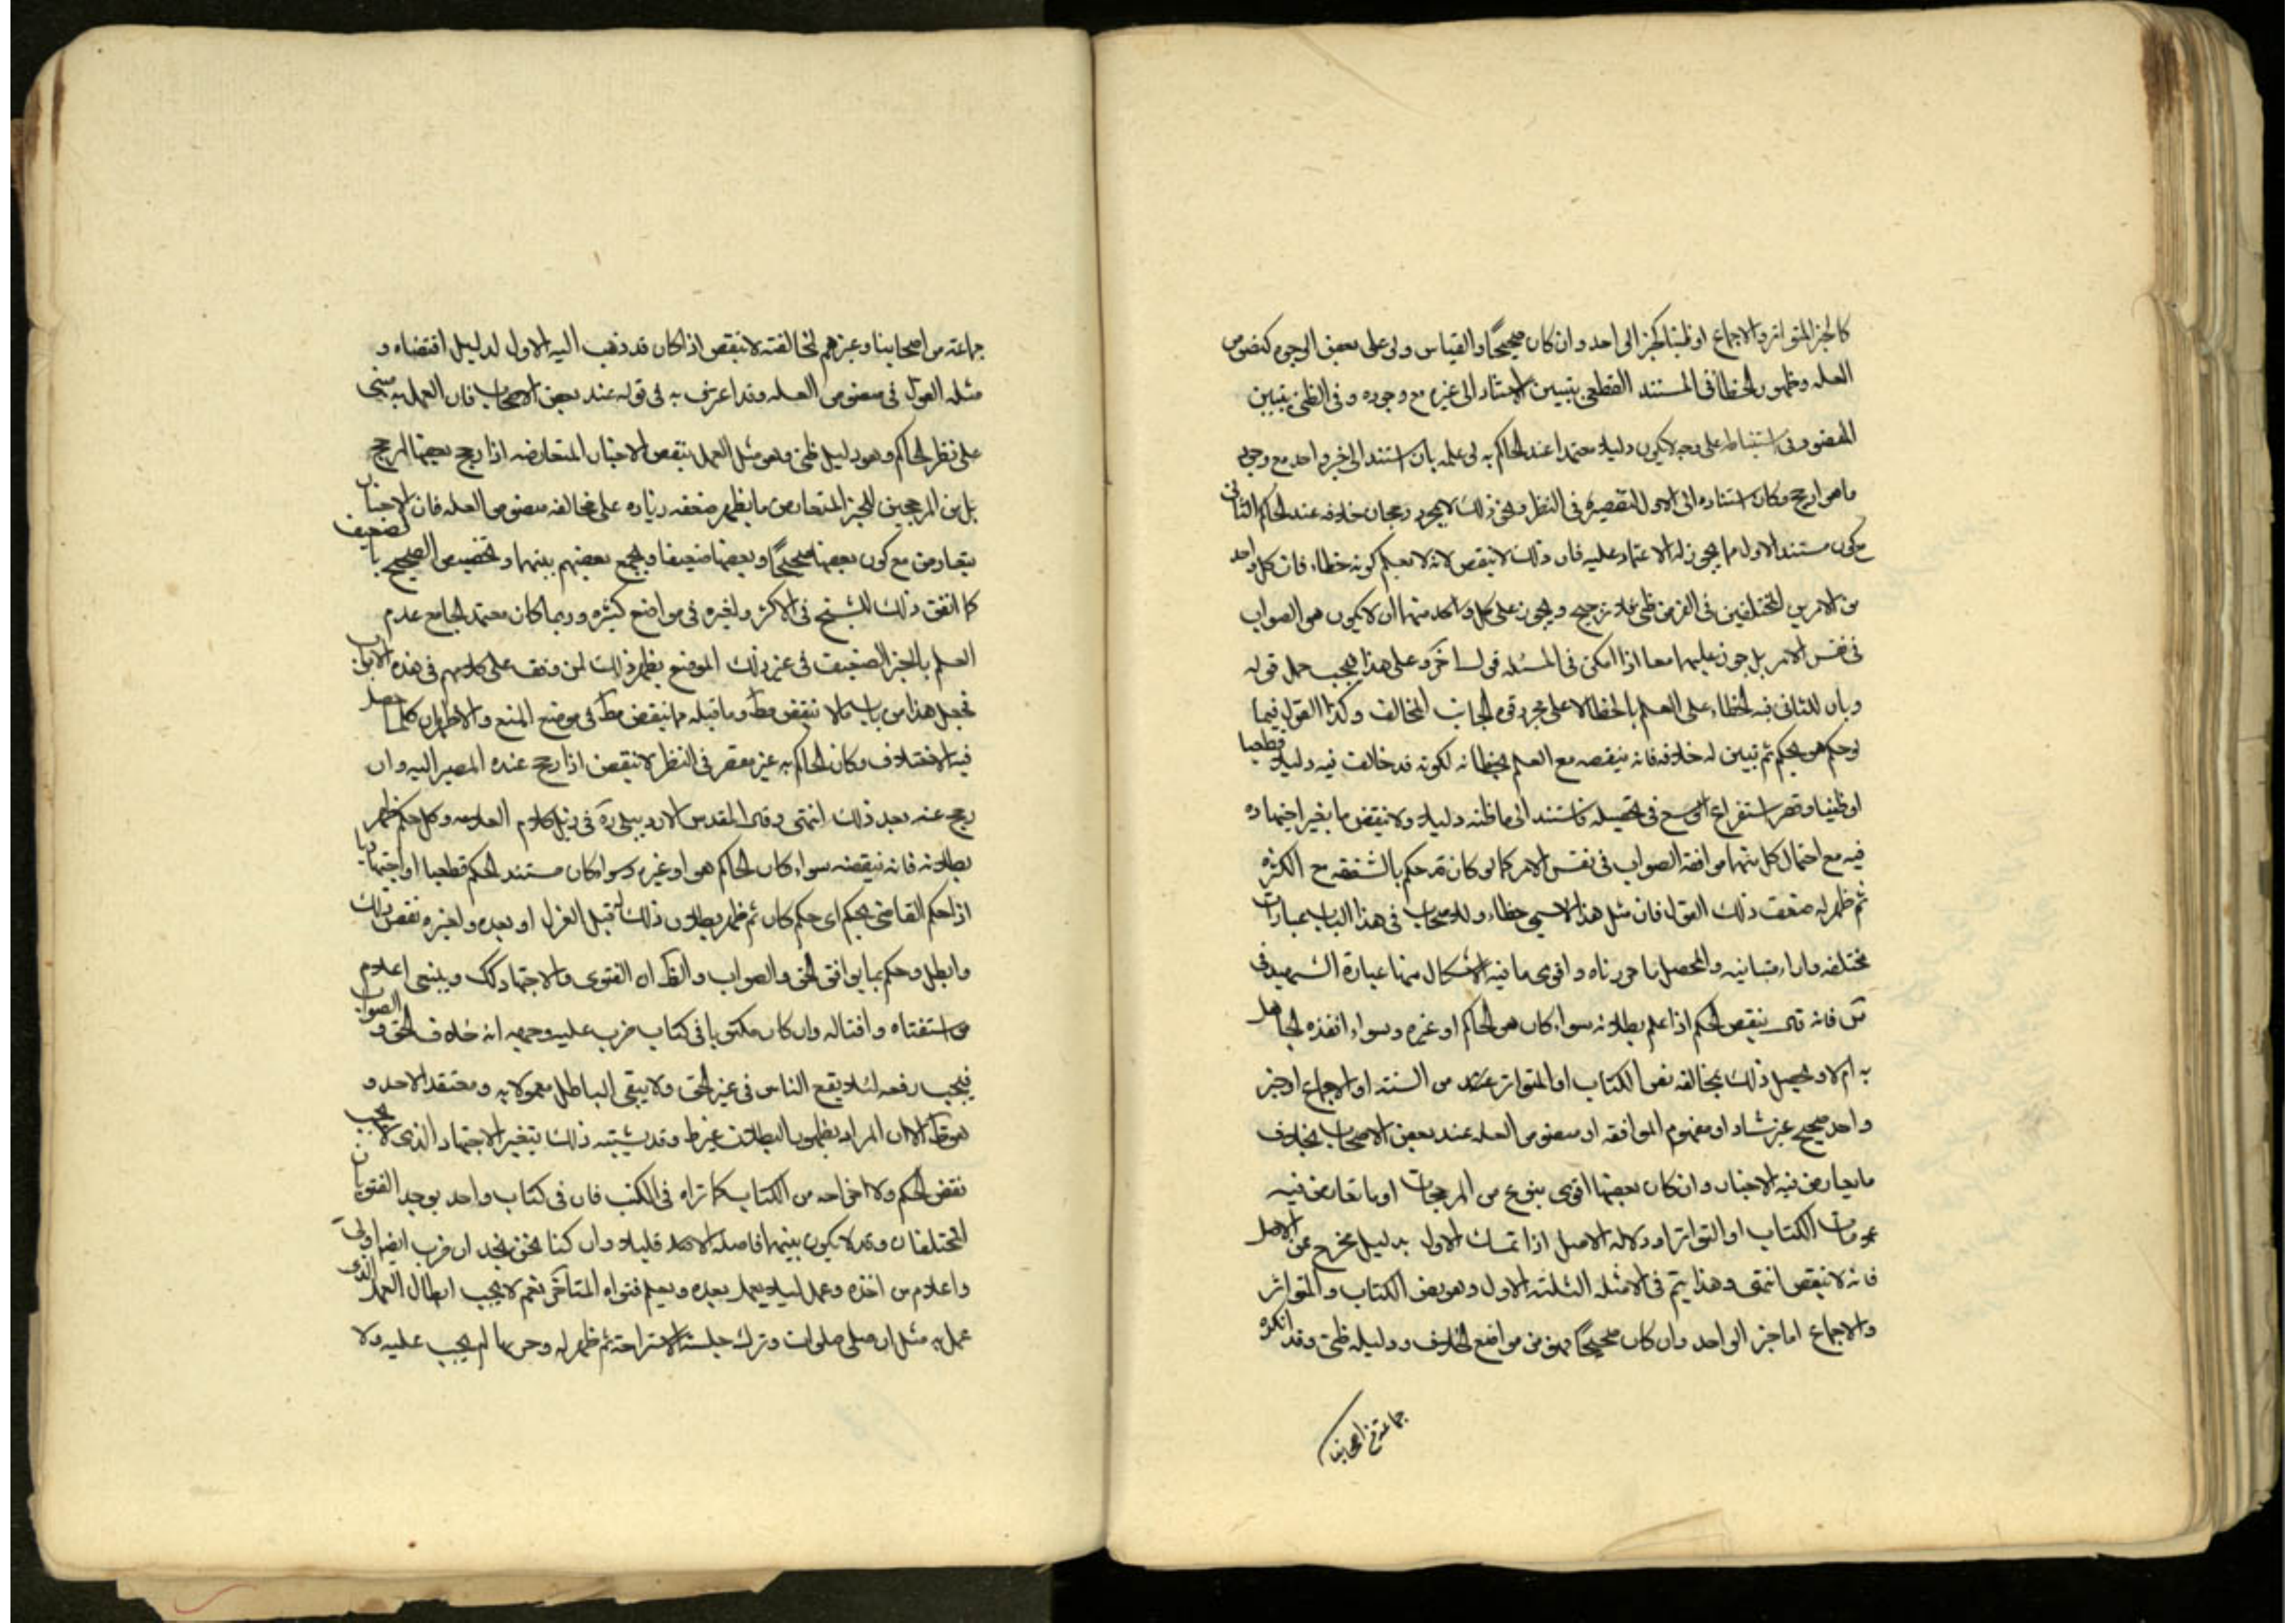 كالخبر المتواتر والاجماع او ظنيا كخبر الواحد وان كان صحيحًا والقياس ولو على بعض الوجوه كمنصوص
العله وظهور الخطا فى المستند القطعى بتبين الاستناد الى غيره مع وجوده وفى الظنى بتبين
القصور فى استنباطه على وجه لا يكون دليلا معتمدا عند الحاكم به لو علمه بان استند الى خبر واحد مع وجود
ما هو ارجح وكان استناده الى الاول لتقصيره فى النظر ونحو ذلك لا بمجرد رجحان خلافه عند الحاكم الثانى
مع كون مستند الاول مما يجوز له الاعتماد عليه فان ذلك لا ينقض لانه لا يعلم كونه خطاء فان كل واحد
من الامرين المختلفين فى الفرض ظنى بلا ترجيح ويجوز على كل واحد منهما ان لا يكون هو الصواب
فى نفس الامر بل يجوز عليهما معا اذا امكن فى المسئله قول اخر وعلى هذا يجب حمل قوله
وبان للثانى فيه الخطاء على العلم بالخطا لا على مجرد قوه الجانب المخالف وكذا القول فيما
لو حكم هو بحكم ثم تبين له خلافه فانه ينقضه مع العلم بخطائه لكونه قد خالف فيه دليلا قطعيا
او ظنيا وقصر استفراغ الوسع فى تحصيله فاستند الى ما ظنه دليلا ولا ينقض ما تغير اجتهاده
فيه مع احتمال كل منهما موافقه الصواب فى نفس الامر كما لو كان قد حكم بالشفعه مع الكثره
ثم ظهر له ضعف ذلك القول فان مثل هذا لا يسمى خطاء وللاصحاب فى هذا الباب عبارات
مختلفه واراء متباينه والمحصل ما حررناه واقوى ما فيه الاشكال منها عبارة الشهيد فى
س فانه قال ينقض الحكم اذا علم بطلانه سواء كان هو الحاكم او غيره وسواء انفذه الجاهل
به ام لا ويحصل ذلك بمخالفه نص الكتاب او المتواتر من السنه او الاجماع او خبر
واحد صحيح غير شاذ او مفهوم الموافقه او منصوص العله عند بعض الاصحاب بخلاف
ما يعارض فيه الاخبار وان كان بعضها اقوى بنوع من المرجحات او ما تعارض فيه
عمومات الكتاب او التواتر او دلاله الاصل اذا تمسك الاول بدليل يخرج عن الاصل
فانه لا ينقض انتهى وهذا يتم فى الامثله الثلثه الاول وهو نص الكتاب والمتواتر
والاجماع اما خبر الواحد وان كان صحيحًا فهو من مواقع الخلاف ودليله ظنى وقد انكره
جماعة من اصحابنا
جماعة من اصحابنا وغيرهم فمخالفته لا ينقض اذا كان قد ذهب اليه الاول لدليل اقتضاه و
مثله القول فى منصوص العله وقد اعترف به فى قوله عند بعض الاصحاب فان العمل به مبنى
على نظر الحاكم وهو دليل ظنى وهو مثل العمل ببعض الاخبار المتعارضه اذا رجح بعضها المرجح
بل من المرجحين للخبر المتعارض ما يظهر ضعفه زياده على مخالفه منصوص العله فان الاخبار
يتعارض مع كون بعضها صحيحًا وبعضها ضعيفا ويجمع بعضهم بينهما وتخصيص الصحيح بالضعيف
كما اتفق ذلك للشيخ فى الاكثر ولغيره فى مواضع كثيره وربما كان معتمد الجامع عدم
العلم بالخبر الضعيف فى غير ذلك الموضع يظهر ذلك لمن وقف على كلامهم فى هذه الابواب
فجعل هذا من باب ما لا ينقض مطَ وما قبله مما ينقض مطَ فى موضع المنع والاظهر ان كلما حصل
فيه الاختلاف وكان الحاكم به غير مقصر فى النظر لا ينقض اذا رجح عنده المصير اليه وان
رجع عنه بعد ذلك انتهى وقال المقدس الاردبيلى ره فى ذيل كلام العلامه وكل حكم ظهر
بطلانه فانه ينقضه سواء كان الحاكم هو او غيره وسواء كان مستند الحكم قطعيا او اجتهاديا
اذا حكم القاضى بحكم اى حكم كان ثم ظهر بطلان ذلك له قبل العزل او بعده ولغيره نقض ذلك
وابطل وحكم بما يوافق الحق والصواب والظَ ان الفتوى والاجتهاد كك وينبغى اعلام
من استفتاه وافتاله وان كان مكتوبا فى كتاب ضرب عليه انه خلاف الحق والصواب
فيجب رفعه لئلا يقع الناس فى غير الحق ولا يبقى الباطل معمولا به ومعتقد الاحد و
هو ظَ الا ان المراد بظهور البطلان غير ظ وقد يشتبه ذلك بتغير الاجتهاد الذى لا يجب
نقض الحكم ولا اخراجه من الكتاب كما تراه فى الكتب فان فى كتاب واحد يوجد الفتويان
المختلفان وقد لا يكون بينهما فاصله الا قليلا وان كنا نحن نجد ان ضرب ايضا اولى
واعلام من اخذه وعمل لئلا يعمل بعده ويعلم فتواه المتاخر نعم لا يجب ابطال العمل الذى
عمل به مثل ان صلى صلوات وترك جلسة الاستراحه ثم ظهر له وجوبها لم يجب عليه ولا